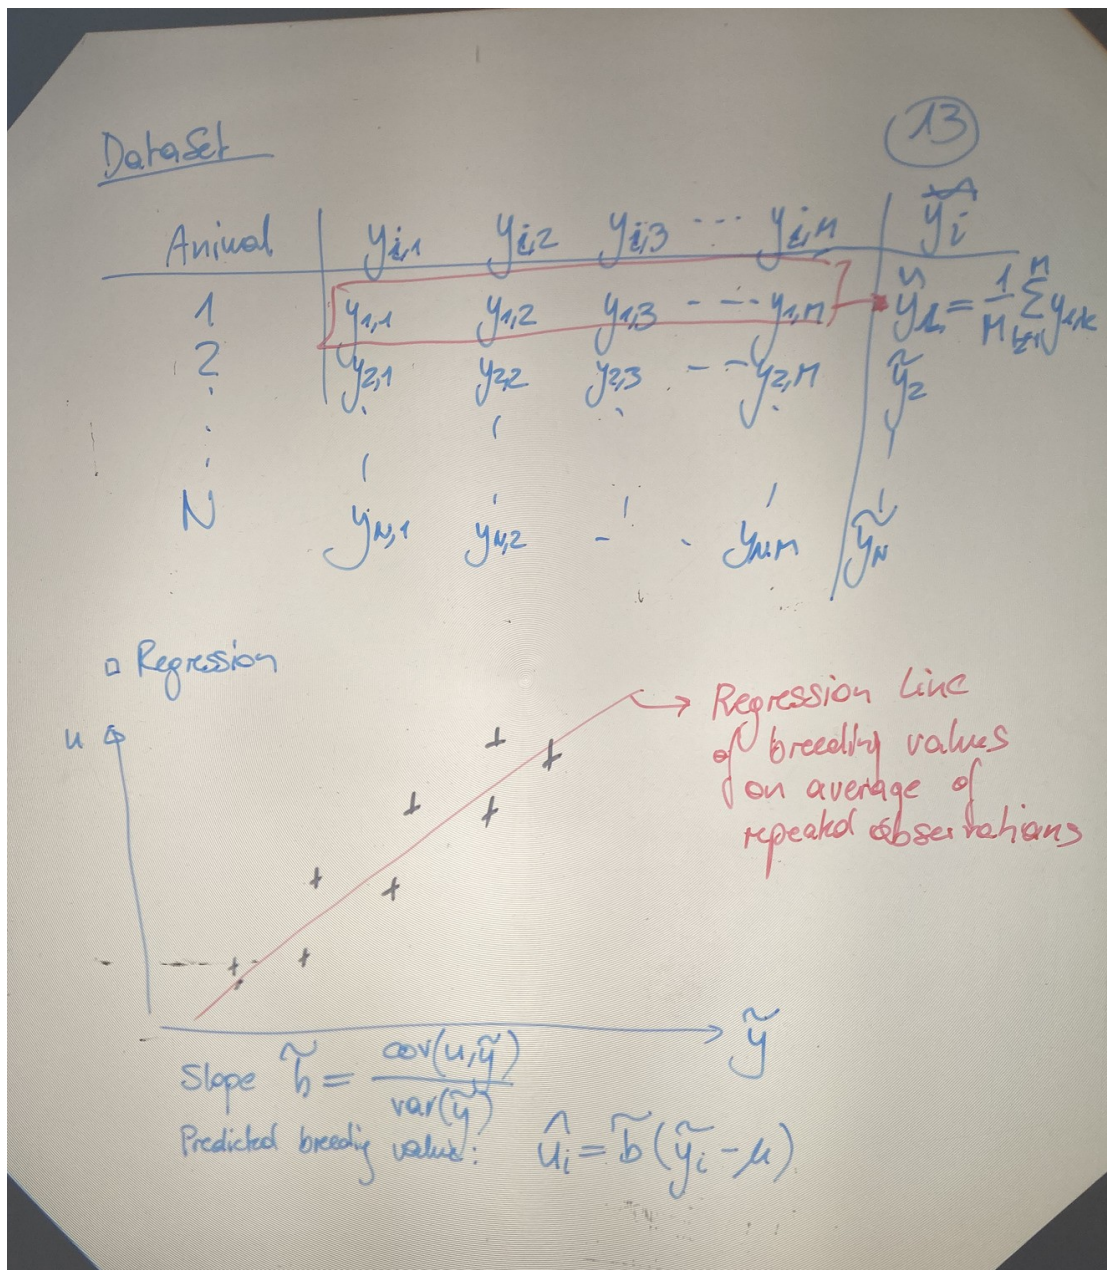 13
Dataset
Animal y_{i,1} y_{i,2} y_{i,3} ... y_{i,M} ỹ_i
1 y_{1,1} y_{1,2} y_{1,3} - - - y_{1,M} → ỹ_1 = 1/M Σ_{k=1}^{M} y_{1,k}
2 y_{2,1} y_{2,2} y_{2,3} - - - y_{2,M} ỹ_2
N y_{N,1} y_{N,2} - - y_{N,M} ỹ_N
□ Regression
u
→ Regression Line
of breeding values
on average of
repeated observations
ỹ
Slope b̃ = cov(u,ỹ) / var(ỹ)
Predicted breedig value: û_i = b̃(ỹ_i - μ)